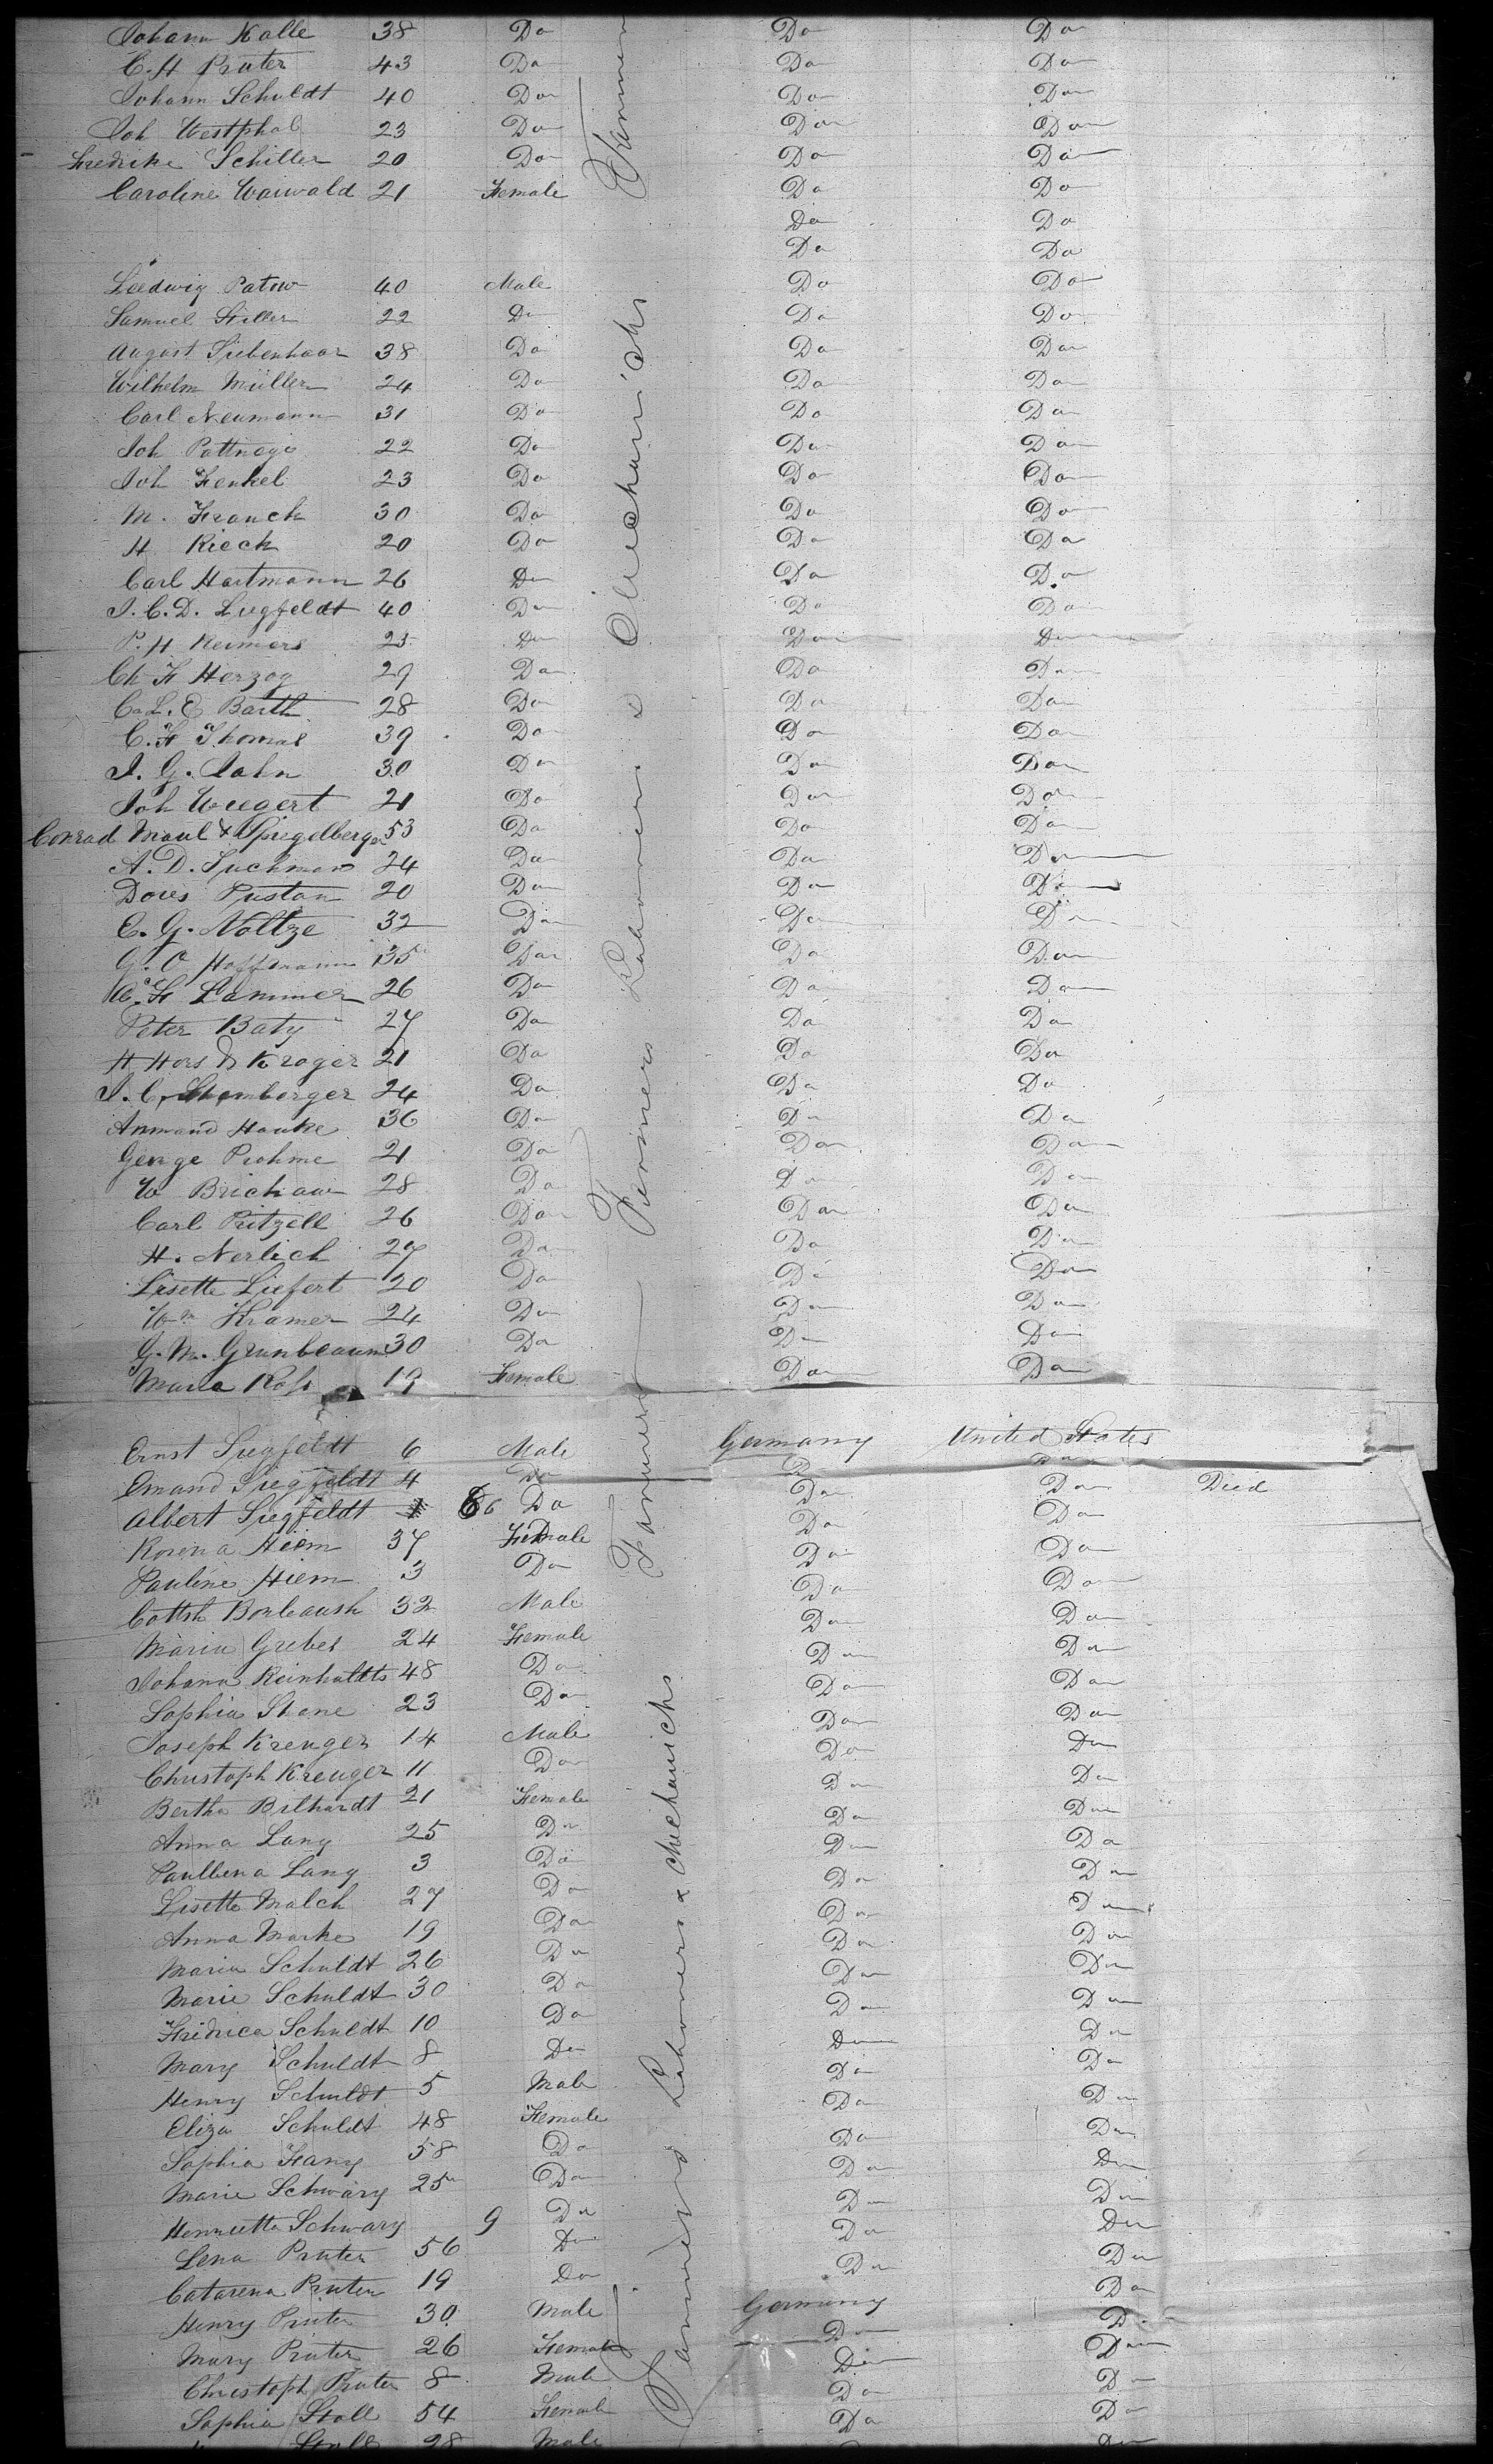 Johann Kalle 38 Do Do Do
C. H Pruter 43 Do Do Do
Johann Schuldt 40 Do Do Do
Joh Westphal 23 Do Do Do
Fredrike Schiller 20 Do Do Do
Caroline Waiwald 21 Female Do Do
Do Do
Do Do
Ludwig Patow 40 Male Do Do
Samuel Stiller 22 Do Do Do
August Siebenhaar 38 Do Do Do
Wilhelm Müller 24 Do Do Do
Carl Neumann 31 Do Do Do
Joh 22 Do Do Do
Joh Henkel 23 Do Do Do
M. Franck 30 Do Do Do
H Rieck 20 Do Do Do
Carl Hartmann 26 Do Do Do
J. C. D. Siegfeldt 40 Do Do Do
P. H Reimers 25 Do Do Do
Ch F Herzog 29 Do Do Do
C. L. E Barth 28 Do Do Do
C. F Thomas 39 Do Do Do
J. G. Jahn 30 Do Do Do
Joh Weegert 21 Do Do Do
Conrad Maul & Spiegelberger 53 Do Do Do
A. D. Suchman 24 Do Do Do
Doris Pustan 20 Do Do Do
E. G. Noltze 32 Do Do Do
G. O Hoffmann 35 Do Do Do
C. F Lammer 26 Do Do Do
Peter Baty 27 Do Do Do
H Hors & Kroger 21 Do Do Do
J. C. 24 Do Do Do
Armand Hauke 36 Do Do Do
George Prohme 21 Do Do Do
W Brickaw 28 Do Do Do
Carl Pritzell 26 Do Do Do
H. Nerlich 27 Do Do Do
Lisette Liefert 20 Do Do Do
Wm Kramer 24 Do Do Do
G. M. Grunbeaum 30 Do Do Do
Maria Ross 19 Female Do Do
Farmers Labourers & Mechanichs
Ernst Siegfeldt 6 Male Germany United States
Emand Siegfeldt 4 Do Do Do
Albert Siegfeldt 6 Do Do Do Died
Rosina Hiem 37 Female Do Do
Pauline Hiem 3 Do Do Do
32 Male Do Do
Maria Grebes 24 Female Do Do
Johana Reinholdts 48 Do Do Do
Sophia Stane 23 Do Do Do
Joseph Kreuger 14 Male Do Do
Christoph Kreuger 11 Do Do Do
Bertha Bilhardt 21 Female Do Do
Anna Lang 25 Do Do Do
Paullena Lang 3 Do Do Do
Lisette Malch 27 Do Do Do
Anna Marke 19 Do Do Do
Maria Schuldt 26 Do Do Do
Marie Schuldt 30 Do Do Do
Fridrica Schuldt 10 Do Do Do
Mary Schuldt 8 Do Do Do
Henry Schuldt 5 Male Do Do
Eliza Schuldt 48 Female Do Do
Sophia Hany 58 Do Do Do
Marie Schwarz 25 Do Do Do
Henriette Schwarz 9 Do Do Do
Lena Pruter 56 Do Do Do
Catarena Pruter 19 Do Do Do
Henry Pruter 30 Male Germany Do
Mary Pruter 26 Female Do Do
Christoph Pruter 8 Male Do Do
Sophia Stoll 54 Female Do Do
Stoll 28 Male Do Do
Farmers Labourers & Mechanichs